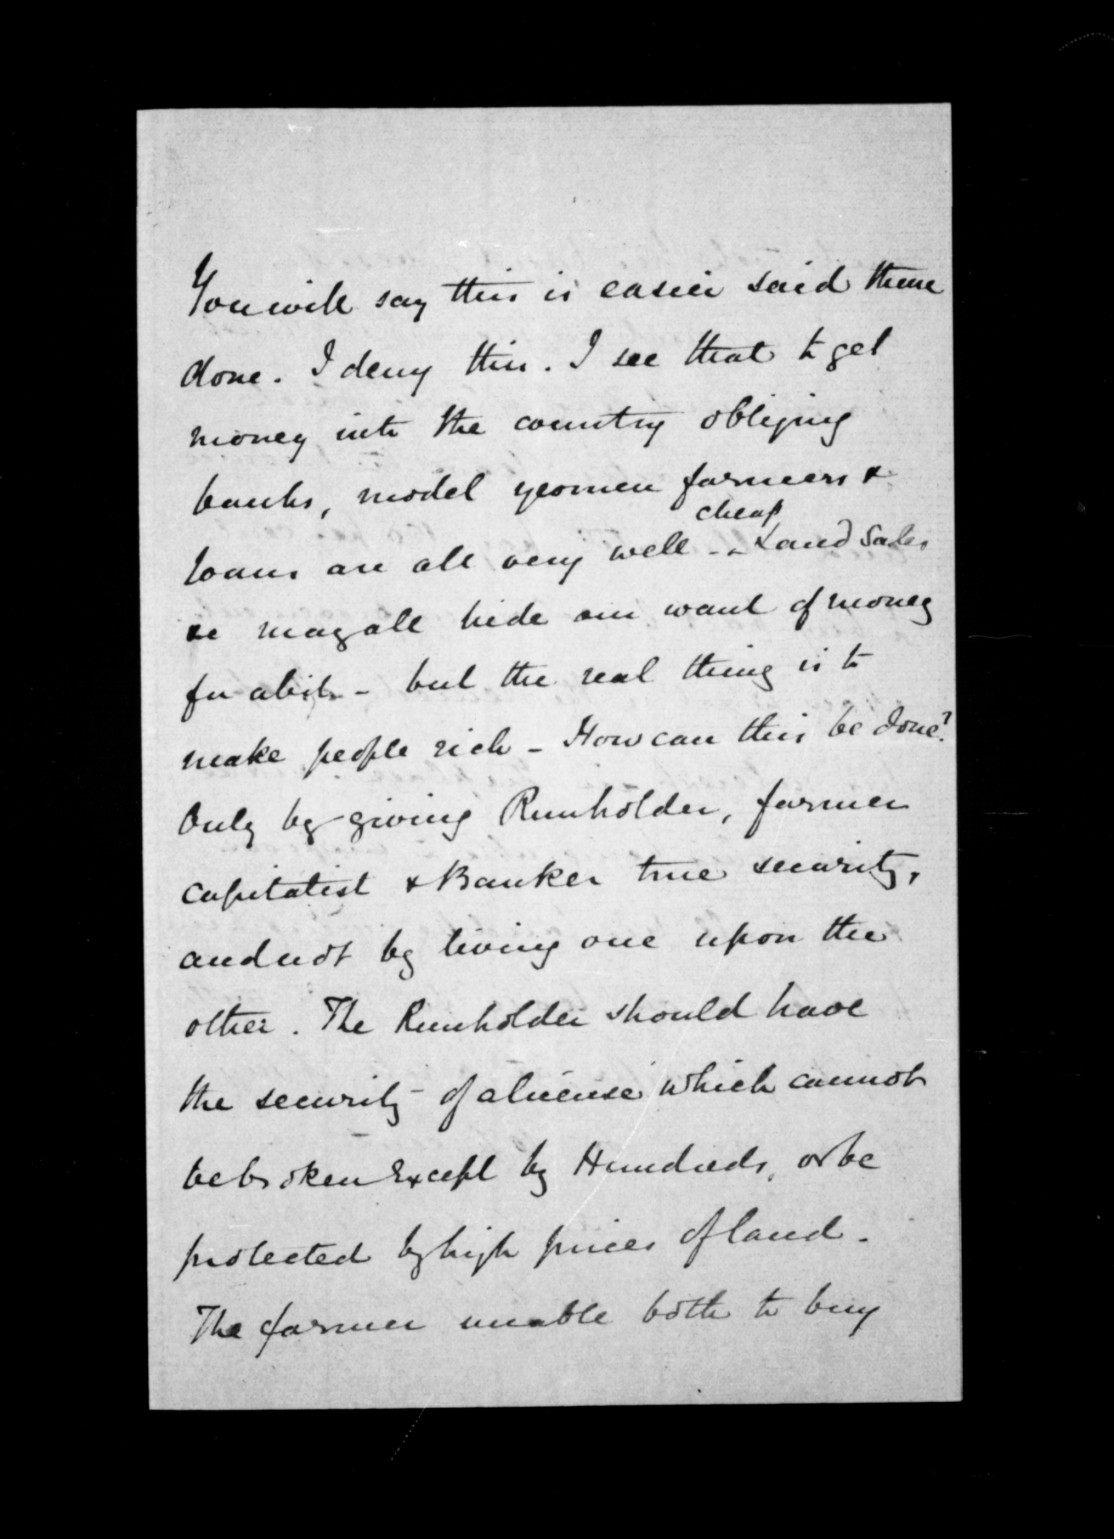 You will say this is easier said than
done. I deny this. I see that to get
money into the country obliging
banks, model yeomen farmers &
loans are all very well - cheap Land Sales
may all hide our want of money
for a bit - but the real thing is to
make people rich - How can this be done?
Only by giving Runholder, farmer
capitalist & Banker true security,
and not by living one upon the
other. The Runholder should have
the security of a license which cannot
be broken Except by Hundreds, or be
protected by high prices of land.
The farmer unable both to buy